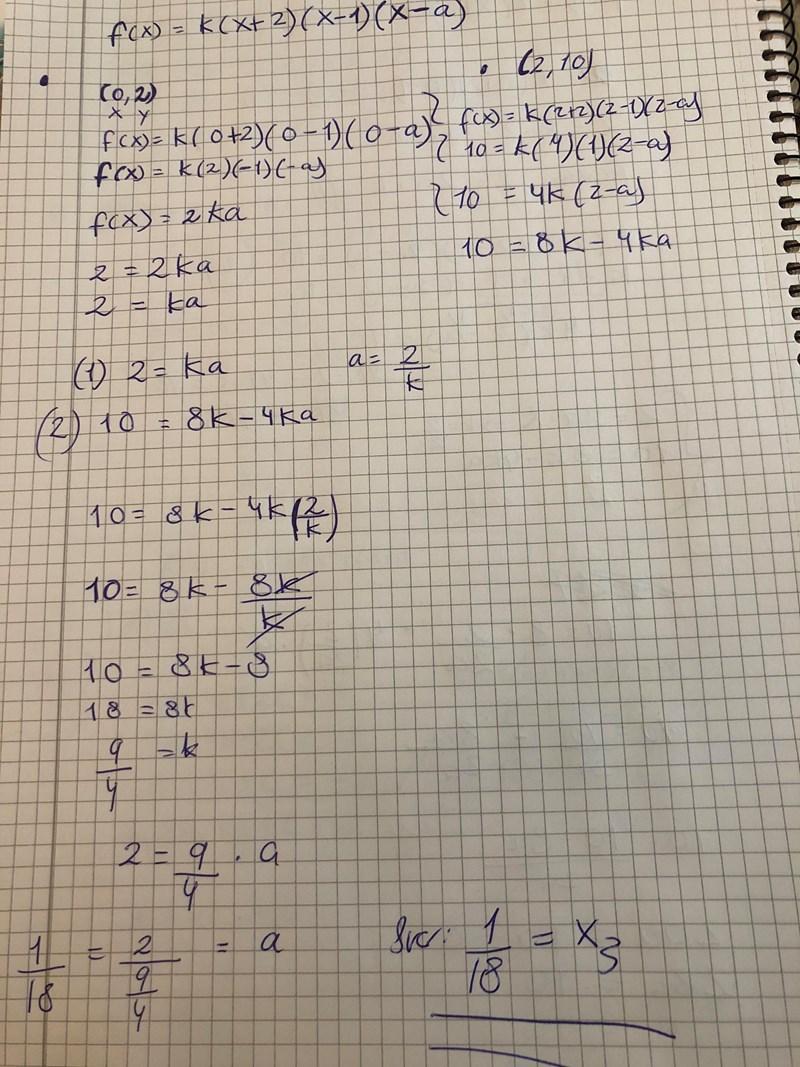 f(x) = k(x+2)(x-1)(x-a)
(0,2)
x y
f(x) = k(0+2)(0-1)(0-a)
f(x) = k(2)(-1)(-a)
f(x) = 2ka
2 = 2ka
2 = ka
• (2,10)
f(x) = k(2+2)(2-1)(2-a)
10 = k(4)(1)(2-a)
10 = 4k(2-a)
10 = 8k - 4ka
(1) 2 = ka a = 2/k
(2) 10 = 8k - 4ka
10 = 8k - 4k(2/k)
10 = 8k - 8k/k
10 = 8k - 8
18 = 8k
9/4 = k
2 = 9/4 · a
1/18 = 2/(9/4) = a
Svar: 1/18 = x₃